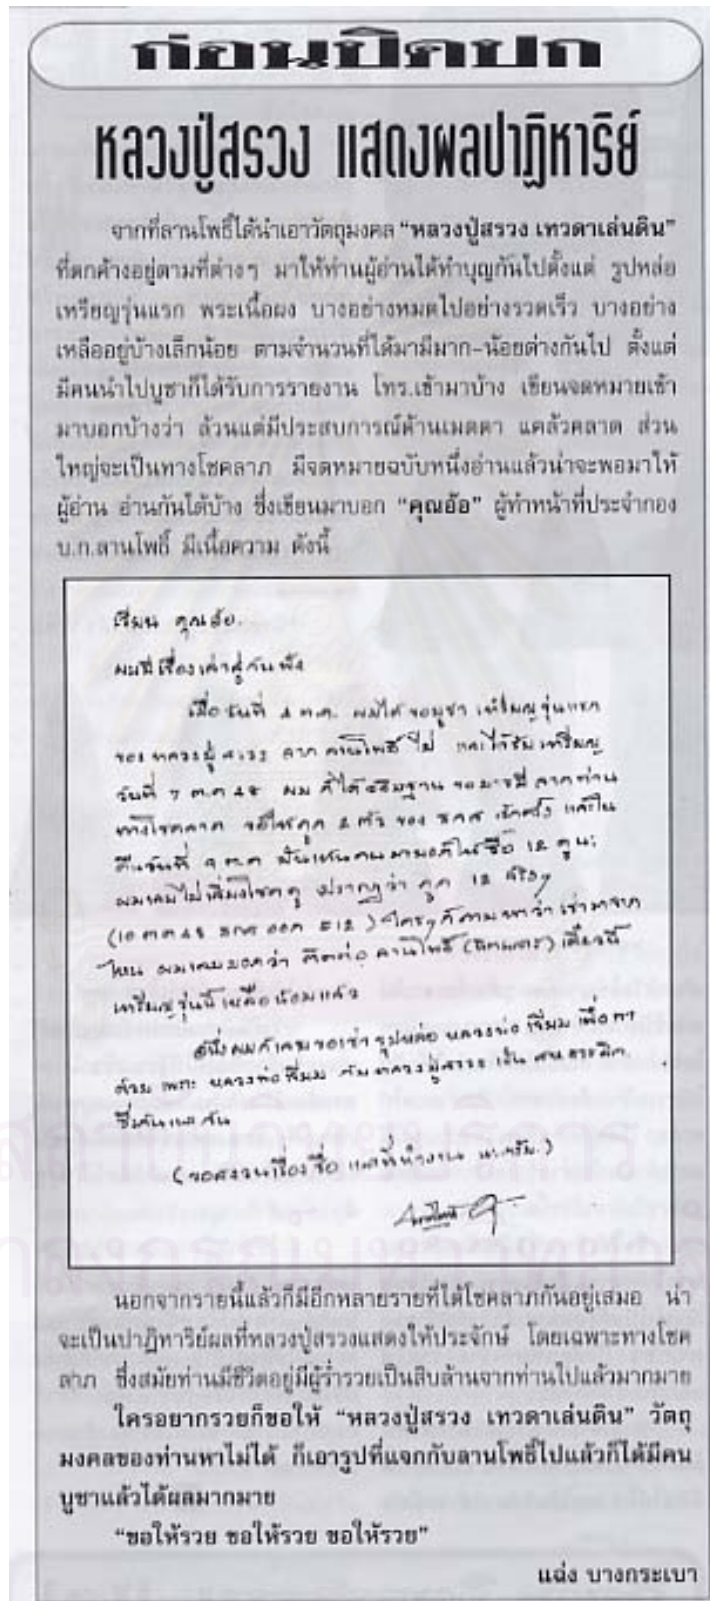 ก่อนปิดปก
หลวงปู่สรวง แสดงผลปาฏิหาริย์
จากที่ลานโพธิ์ได้นำเอาวัตถุมงคล “หลวงปู่สรวง เทวดาเล่นดิน”
ที่ตกค้างอยู่ตามที่ต่างๆ มาให้ท่านผู้อ่านได้ทำบุญกันไปตั้งแต่ รูปหล่อ
เหรียญรุ่นแรก พระเนื้อผง บางอย่างหมดไปอย่างรวดเร็ว บางอย่าง
เหลืออยู่บ้างเล็กน้อย ตามจำนวนที่ได้มามีมาก-น้อยต่างกันไป ตั้งแต่
มีคนนำไปบูชาก็ได้รับการรายงาน โทร.เข้ามาบ้าง เขียนจดหมายเข้า
มาบอกบ้างว่า ล้วนแต่มีประสบการณ์ด้านเมตตา แคล้วคลาด ส่วน
ใหญ่จะเป็นทางโชคลาภ มีจดหมายฉบับหนึ่งอ่านแล้วน่าจะพอมาให้
ผู้อ่าน อ่านกันได้บ้าง ซึ่งเขียนมาบอก “คุณอ้อ” ผู้ทำหน้าที่ประจำกอง
บ.ก.ลานโพธิ์ มีเนื้อความ ดังนี้
เรียน คุณอ้อ.
ผมมีเรื่องเล่าสู่กันฟัง
เมื่อวันที่ 4 ต.ค. ผมได้ ขอบูชา เหรียญรุ่นแรก
ของ หลวงปู่ สรวง จาก ลานโพธิ์ ไป และได้รับ เหรียญ
วันที่ 7 ต.ค 48 ผม ก็ได้อธิษฐาน ขอบารมี จากท่าน
ทางโชคลาภ ขอให้ถูก 2 ตัว ของ ธกส สักครั้ง แล้วใน
คืนวันที่ 9 ต.ค ฝันเห็นคนมาบอกให้ซื้อ 12 ดูนะ
ผมเลยไปเสี่ยงโชคดู ปรากฏว่า ถูก 12 จริงๆ
(10 ตค48 ธกส ออก 12) ใครๆก็ถามหาว่าเช่ามาจาก
ไหน ผมเลยบอกว่า ติดต่อ ลานโพธิ์ เดี๋ยวนี้
เหรียญรุ่นนี้เหลือน้อยแล้ว
อนึ่งผมก็เลยขอเช่า รูปหล่อ หลวงพ่อ
ด้วย เพราะ หลวงพ่อ กับหลวงปู่สรวง เป็น สหธรรมิก
ซึ่งกันและกัน
(ขอสงวนเรื่องชื่อ และที่ทำงาน นะครับ.)
นอกจากรายนี้แล้วก็มีอีกหลายรายที่ได้โชคลาภกันอยู่เสมอ น่า
จะเป็นปาฏิหาริย์ผลที่หลวงปู่สรวงแสดงให้ประจักษ์ โดยเฉพาะทางโชค
ลาภ ซึ่งสมัยท่านมีชีวิตอยู่มีผู้ร่ำรวยเป็นสิบล้านจากท่านไปแล้วมากมาย
ใครอยากรวยก็ขอให้ “หลวงปู่สรวง เทวดาเล่นดิน” วัตถุ
มงคลของท่านหาไม่ได้ ก็เอารูปที่แจกกับลานโพธิ์ไปแล้วก็ได้มีคน
บูชาแล้วได้ผลมากมาย
“ขอให้รวย ขอให้รวย ขอให้รวย”
แฉ่ง บางกระเบา